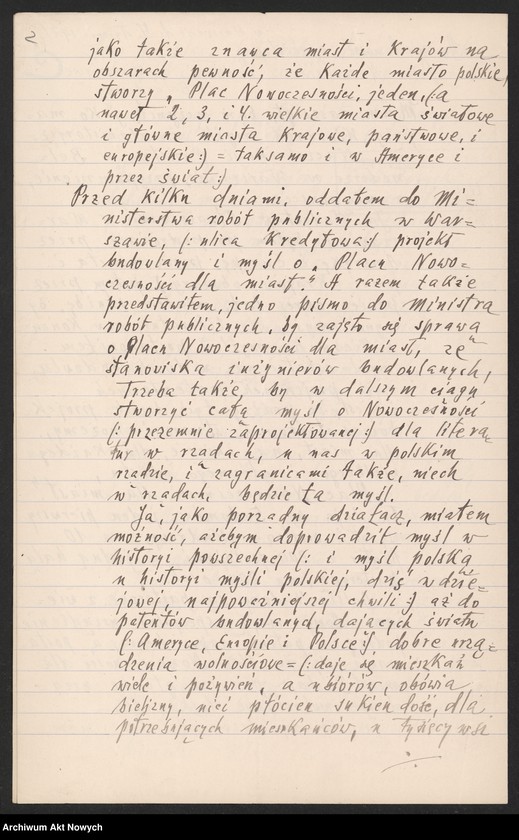 2
jako także znawca miast i krajów na
obszarach pewność, że każde miasto polskie,
stworzy „Plac Nowoczesności, jeden, (:a
nawet 2, 3, i 4. wielkie miasta światowe
i główne miasta krajowe, państwowe, i
europejskie:) = taksamo i w Ameryce i
przez świat:)
Przed kilku dniami, oddałem do Mi=
nisterstwa robót publicznych w War=
szawie, (: ulica Kredytowa:) projekt
budowlany i myśl o „Placu Nowo=
czesności dla miast." A razem także
przedstawiłem, jedno pismo do Ministra
robót publicznych, by zajęto się sprawą
o Placu Nowoczesności dla miast, ze
stanowiska inżynierów budowlanych,
Trzeba także, by w dalszym ciągu
stworzyć całą myśl o Nowoczesności
(: przezemnie zaprojektowanej:) dla litera
tur w rządach, u nas w polskim
rządzie, i zagranicami także, niech
w rządach, będzie ta myśl.
Ja, jako porządny działacz, miałem
możność, ażebym doprowadził myśl w
historyi powszechnej (: i myśl polską
u historyi myśli polskiej, dziś w dzie=
jowej, najpoważniejszej chwili:) aż do
patentów budowlanych, dających światu
(: Ameryce, Europie i Polsce:), dobre urzą=
dzenia wolnościowe = (: daje się mieszkań
wiele i pożywień, a ubiorów, obówia
bielizny, nici płócien sukien dość, dla
potrzebujących mieszkańców, u tysięcy wsi
Archiwum Akt Nowych